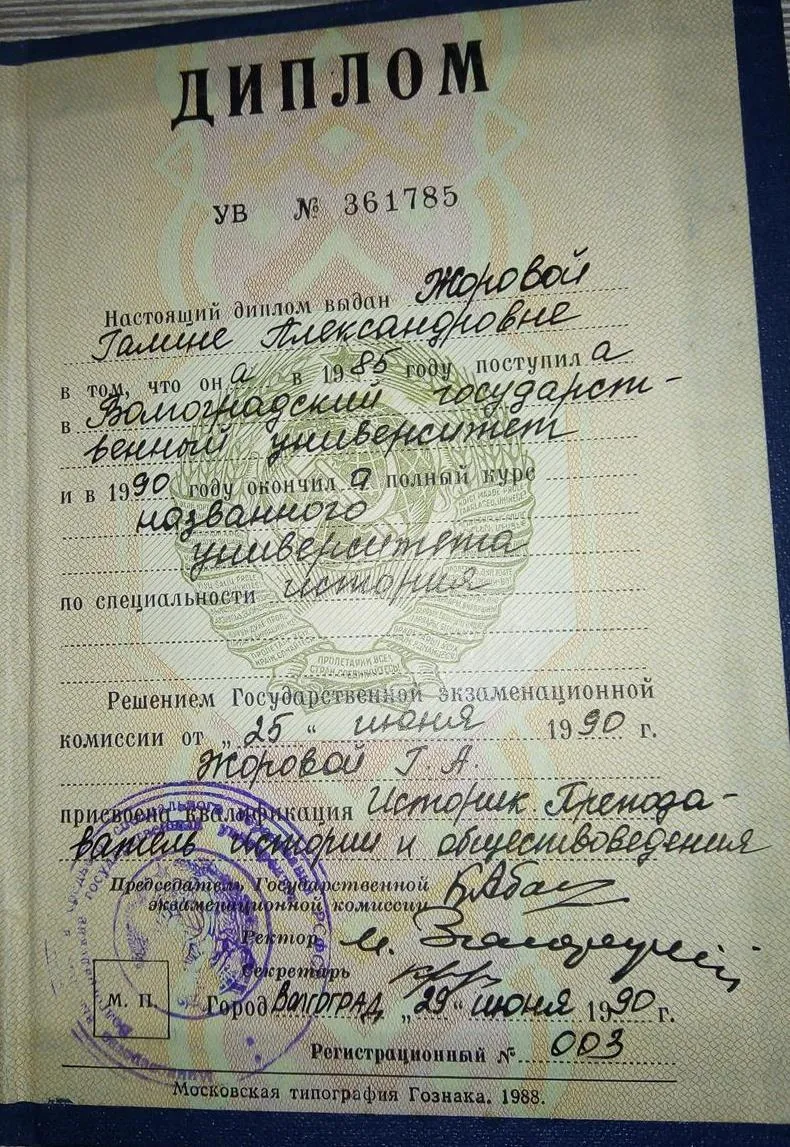 ДИПЛОМ
УВ № 361785
Настоящий диплом выдан Жоровой
Галине Александровне
в том, что она в 1985 году поступила
в Волгоградский государст-
венный университет
и в 1990 году окончила полный курс
названного
университета
по специальности история
ПРОЛЕТАРИИ ВСЕХ
СТРАН, СОЕДИНЯЙТЕСЬ!
Решением Государственной экзаменационной
комиссии от „25“ июня 1990 г.
Жоровой Г. А.
присвоена квалификация Историк Препода-
ватель истории и обществоведения
Председатель Государственной
экзаменационной комиссии
Ректор
Секретарь
М. П.
Город Волгоград „29“ июня 1990 г.
Регистрационный № 003
Московская типография Гознака. 1988.